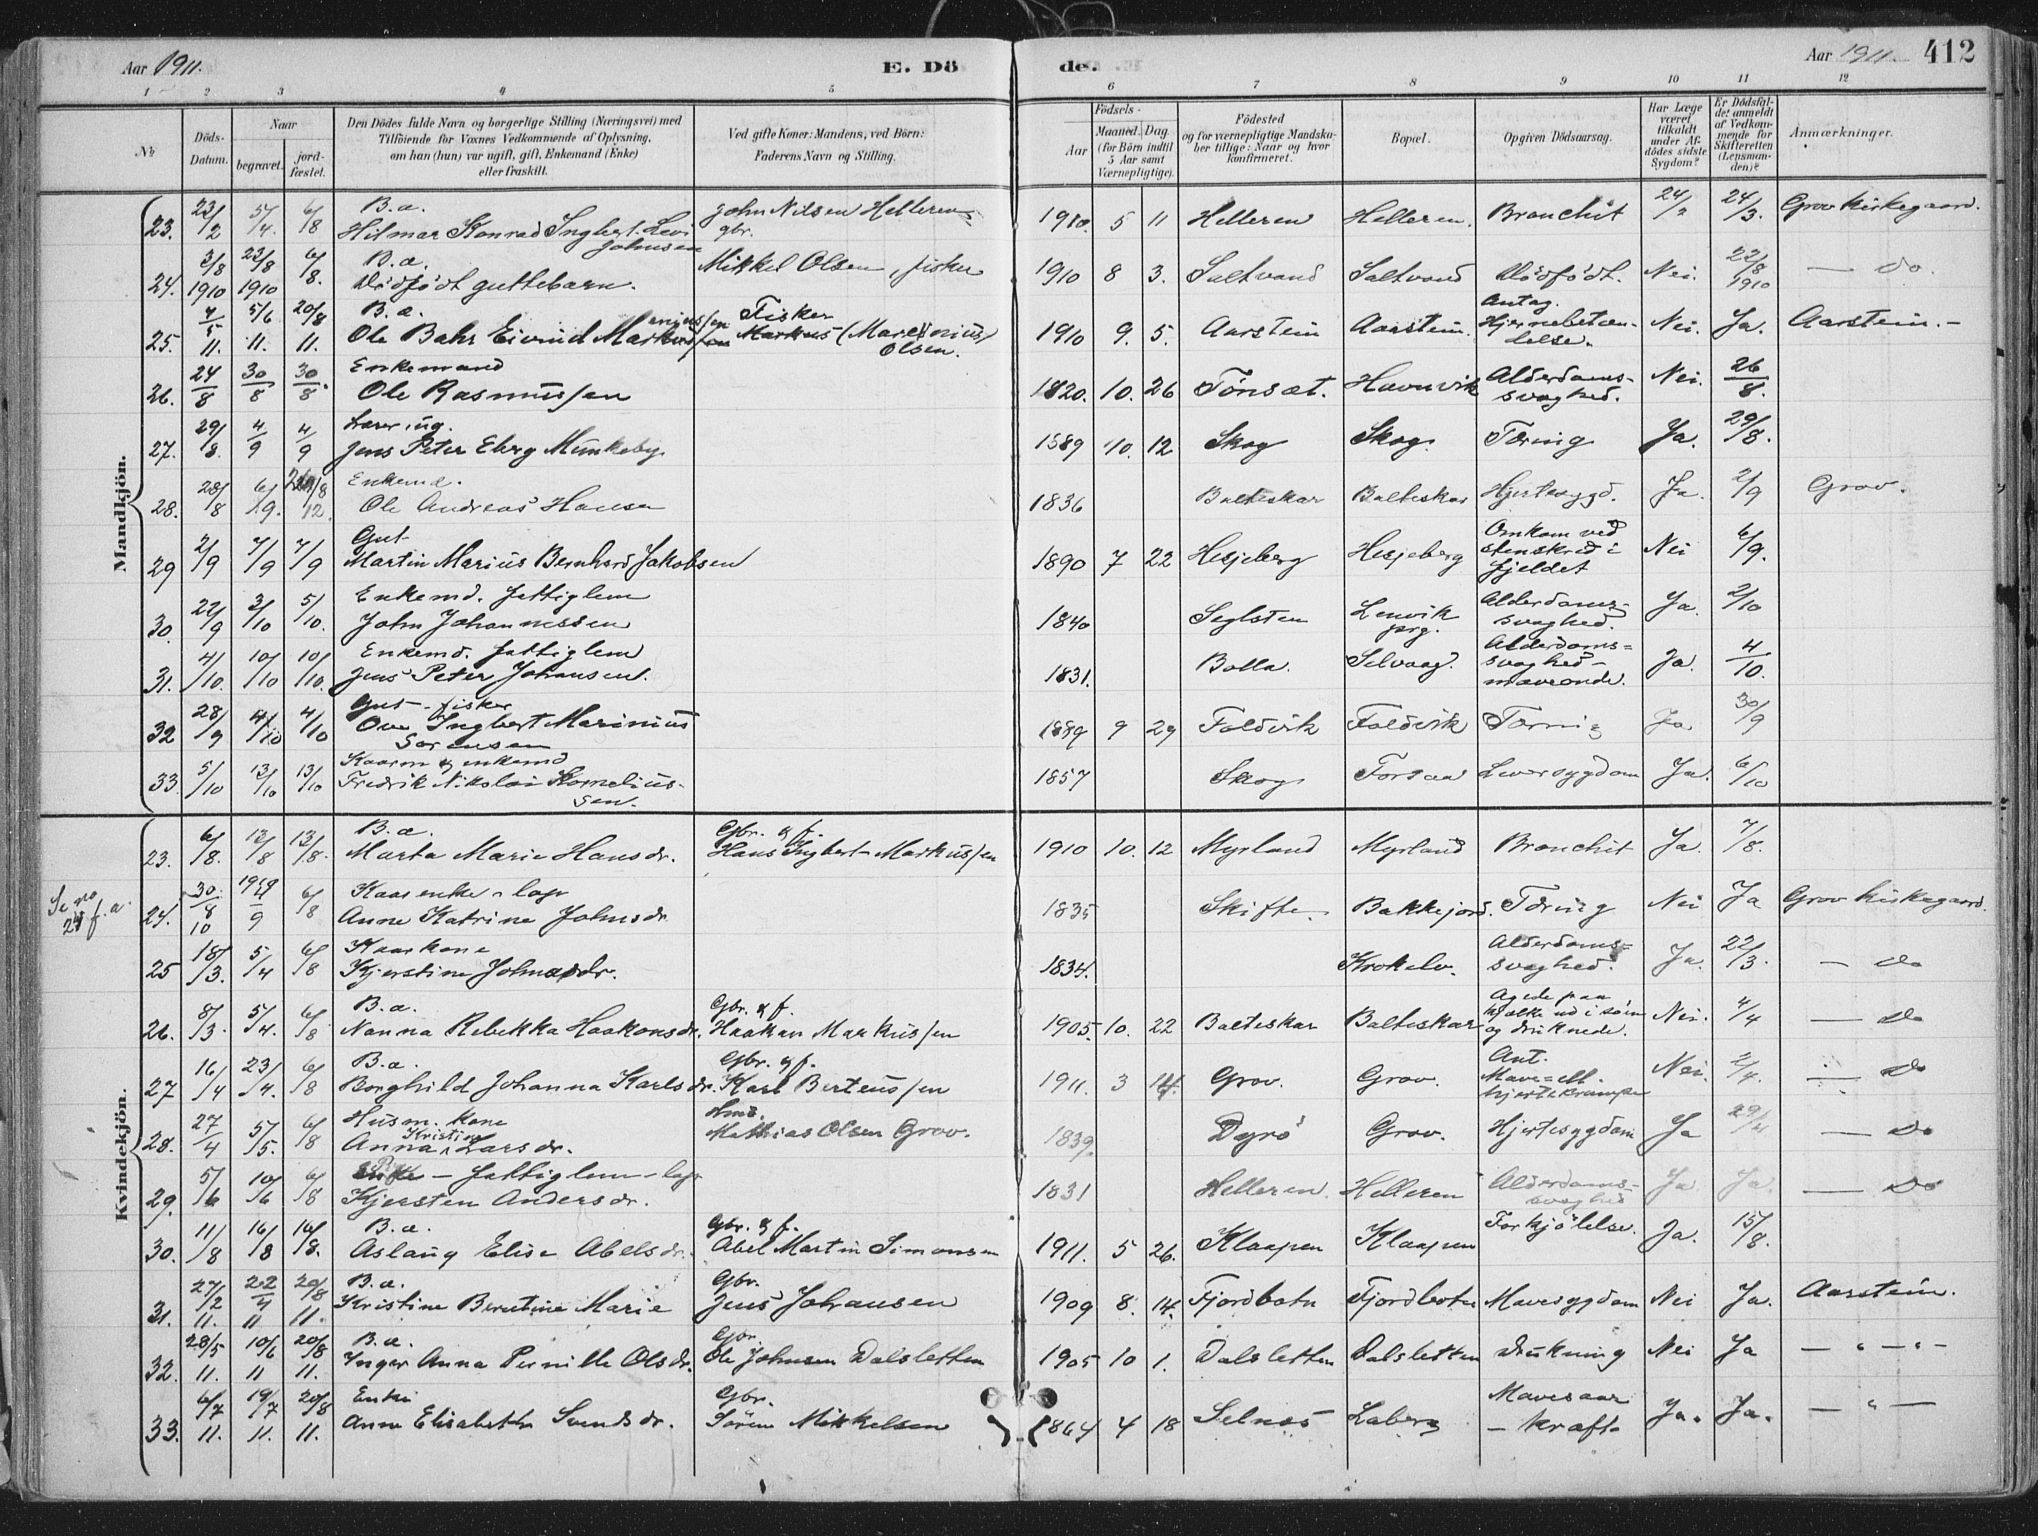 Aar 1911.
E. Dö
de.
Aar 1911.
412
1 2 3 4 5 6 7 8 9 10 11 12
No
Döds-
Datum.
Naar
begravet.
jord-
fæstet.
Den Dödes fulde Navn og borgerlige Stilling (Næringsvei) med
Tilföiende for Voxnes Vedkommende af Oplysning,
om han (hun) var ugift, gift, Enkemand (Enke)
eller fraskilt.
Ved gifte Koner: Mandens, ved Börn:
Faderens Navn og Stilling.
Födsels-
Aar
Maaned. Dag.
(for Börn indtil
5 Aar samt
Værnepligtige).
Födested
og for værnepligtige Mandska-
ber tillige: Naar og hvor
konfirmeret.
Bopæl.
Opgiven Dödsaarsag.
Har Læge
været
tilkaldt
under Af-
dödes sidste
Sygdom?
Er Dödsfal-
det anmeldt
af Vedkom-
mende for
Skifteretten
(Lensman-
den)?
Anmærkninger.
Mandkjön.
B.a. John Nilsen Helleren
23. 23/2 5/4. 6/8 Hilmar Konrad Ingbert Levi gbr. 1910. 5 11 Helleren Helleren. Bronchit 24/2 24/3. Grov kirkegaard.
Johnsen
B.a. Mikkel Olsen, fisker
24. 3/8 1910 23/8 1910 6/8. Dödfödt guttebarn. 1910 8 3. Saltvand Saltvand Dödfödt. Nei. 22/8 1910 — Do.
B.a. Fisker Antag.
25. 4/5 11. 5/6 11. 20/8 11. Ole Bahr Eivind Markus (Marenius) 1910 9. 5. Aarstein Aarstein. Hjernebetæn- Nei. Ja. Aarstein.-
Olsen. delse.
Enkemand
26. 24/8 30/8 30/8. Ole Rasmussen 1820. 10. 26 Tönsæt. Havnvik Alderdoms- Nei. 26/8.
svaghed.
27. 29/8. 4/9 4/9 Jens Peter Eberg Munkeby 1889 10. 12 Skog Skog. Tæring Ja. 29/8.
Enkemd.
28. 28/8 6/9. 12 Ole Andreas Hansen 1836 Balteskar Balteskar Hjertesygd. Ja. 2/9 Grov.
Gut Omkom ved
29 2/9 7/9 7/9 Martin Marius Bernhard Jakobsen 1890 7 22 Hesjeberg Hesjeberg stenskred i Nei 6/9.
fjeldet
Enkemd. fattiglem
30. 22/9 3/10 5/10. John Johannessen 1840 Seglsten Lenvik prg. Alderdoms- Ja. 2/10
svaghed.
Enkemd. fattiglem
31. 4/10. 10/10 10/10. Jens Peter Johansen. 1831. Bolla. Selvaag. Alderdoms- Ja. 4/10.
svaghed-
maveonde.
Gut - fisker
32 28/9 4/10 4/10 Ove Ingbert Marinius 1889 9 29 Foldvik Foldvik Tæring Ja 30/9
Sørensen
Kaarm & enkemd
33. 5/10 13/10 13/10 Fredrik Nikolai Kornelius- 1857 Skog Forsaa Leversygdom Ja. 6/10
sen.
Kvindekjön.
B.a. Gbr. & f.
23. 6/8. 13/8 13/8. Marta Marie Hansdr. Hans Ingbert Markussen 1910 10. 12 Myrland Myrland Bronchit Ja. 7/8.
Se no
24 f.a.
24. 30/8 10 6/8 Anne Katrine Johnsdr. 1835 Skifte Bakkejord. Tæring Nei Ja Grov kirkegaard.
Kaarkone Alderdoms-
25 18/3. 5/4 6/8 Kjerstine Johnsdr. 1834. Krokelv. svaghed. Ja. 22/3. — do
B.a. Gbr. & f. Agede paa
26. 8/3. 5/4. 6/8 Nanna Rebekka Haakonsdr. Haakon Markussen 1905. 10. 22 Balteskar Balteskar kjælke ud i søen Nei. 4/4 — do
og druknede.
B.a. Gbr. & f. Ant.
27 16/4 23/4. 6/8 Borghild Johanna Karlsdr. Karl Berteussen 1911. 3 14. Grov. Grov. Mave- Nei. 2/4. — Do
hjertekrampe
Husm. kone
28. 27/4 5/5. 6/8 Anna Kristine Larsdr. Mathias Olsen Grov. 1839. Dyrö Grov. Hjertesygdom Ja 29/4 — Do
— fattiglem - lap
29. 5/6 10/6 6/8 Kjersten Andersdr. 1831 Helleren. Helleren Alderdoms- Ja Ja. — Do
svaghed
B.a. Gbr. & f.
30. 11/8 16/8 16/8. Aslaug Elise Abelsdr. Abel Martin Simonsen 1911. 5 26. Klaapen Klaapen Forkjölelse. Ja. 15/8.
B.a. Gbr.
31. 27/2 11. 22/4 11 20/8 11. Kristine Berntine Marie Jens Johansen 1909 8. 14. Fjordbotn Fjordbotn Mavesygdom Nei Ja. Aarstein.
B.a. Gbr.
32. 28/5 11. 10/6 11 20/8 11. Inger Anna Pernille Olsdr. Ole Johnsen Dalsletten 1905 10 1. Dalsletten Dalsletten Drukning Nei Ja — " — " —
Enke Gbr. Mavesaar
33. 6/7 11. 19/7 11. 20/8 11. Anne Elisabeth Svendsdr. Sören Mikkelsen 1864 4 18 Selnæs Laberg - kræft. Ja. Ja. — " —